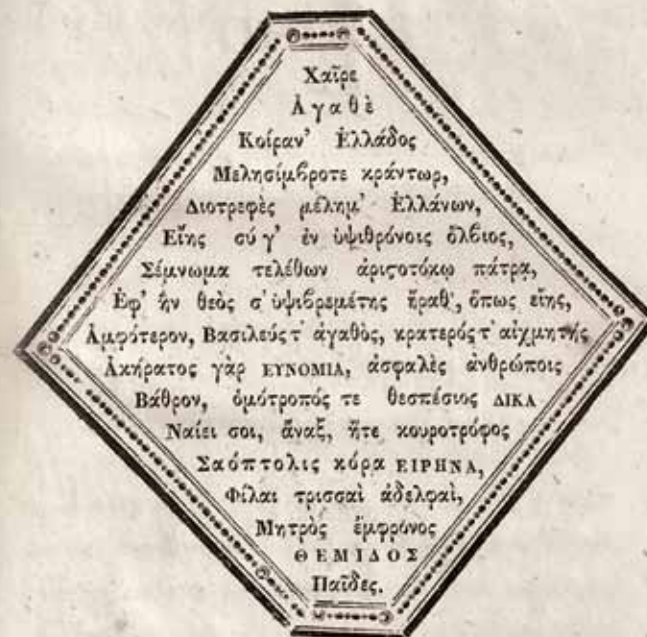 Χαῖρε
Ἀγαθὲ
Κοίραν' Ἑλλάδος
Μελησίμβροτε κράντωρ,
Διοτρεφὲς μέλημ' Ἑλλάνων,
Εἴης σύ γ' ἐν ὑψιθρόνοις ὄλβιος,
Σέμνωμα τελέθων ἀριϛοτόκῳ πάτρᾳ,
Ἐφ' ἣν θεὸς σ' ὑψιβρεμέτης ἤραθ', ὅπως εἴης,
Ἀμφότερον, Βασιλεύς τ' ἀγαθὸς, κρατερός τ' αἰχμητής
Ἀκήρατος γὰρ ΕΥΝΟΜΙΑ, ἀσφαλὲς ἀνθρώποις
Βάθρον, ὁμότροπός τε θεσπέσιος ΔΙΚΑ
Ναίει σοι, ἄναξ, ἥτε κουροτρόφος
Σαόπτολις κόρα ΕΙΡΗΝΑ,
Φίλαι τρισσαὶ ἀδελφαὶ,
Μητρὸς ἐμφρόνος
ΘΕΜΙΔΟΣ
Παῖδες.